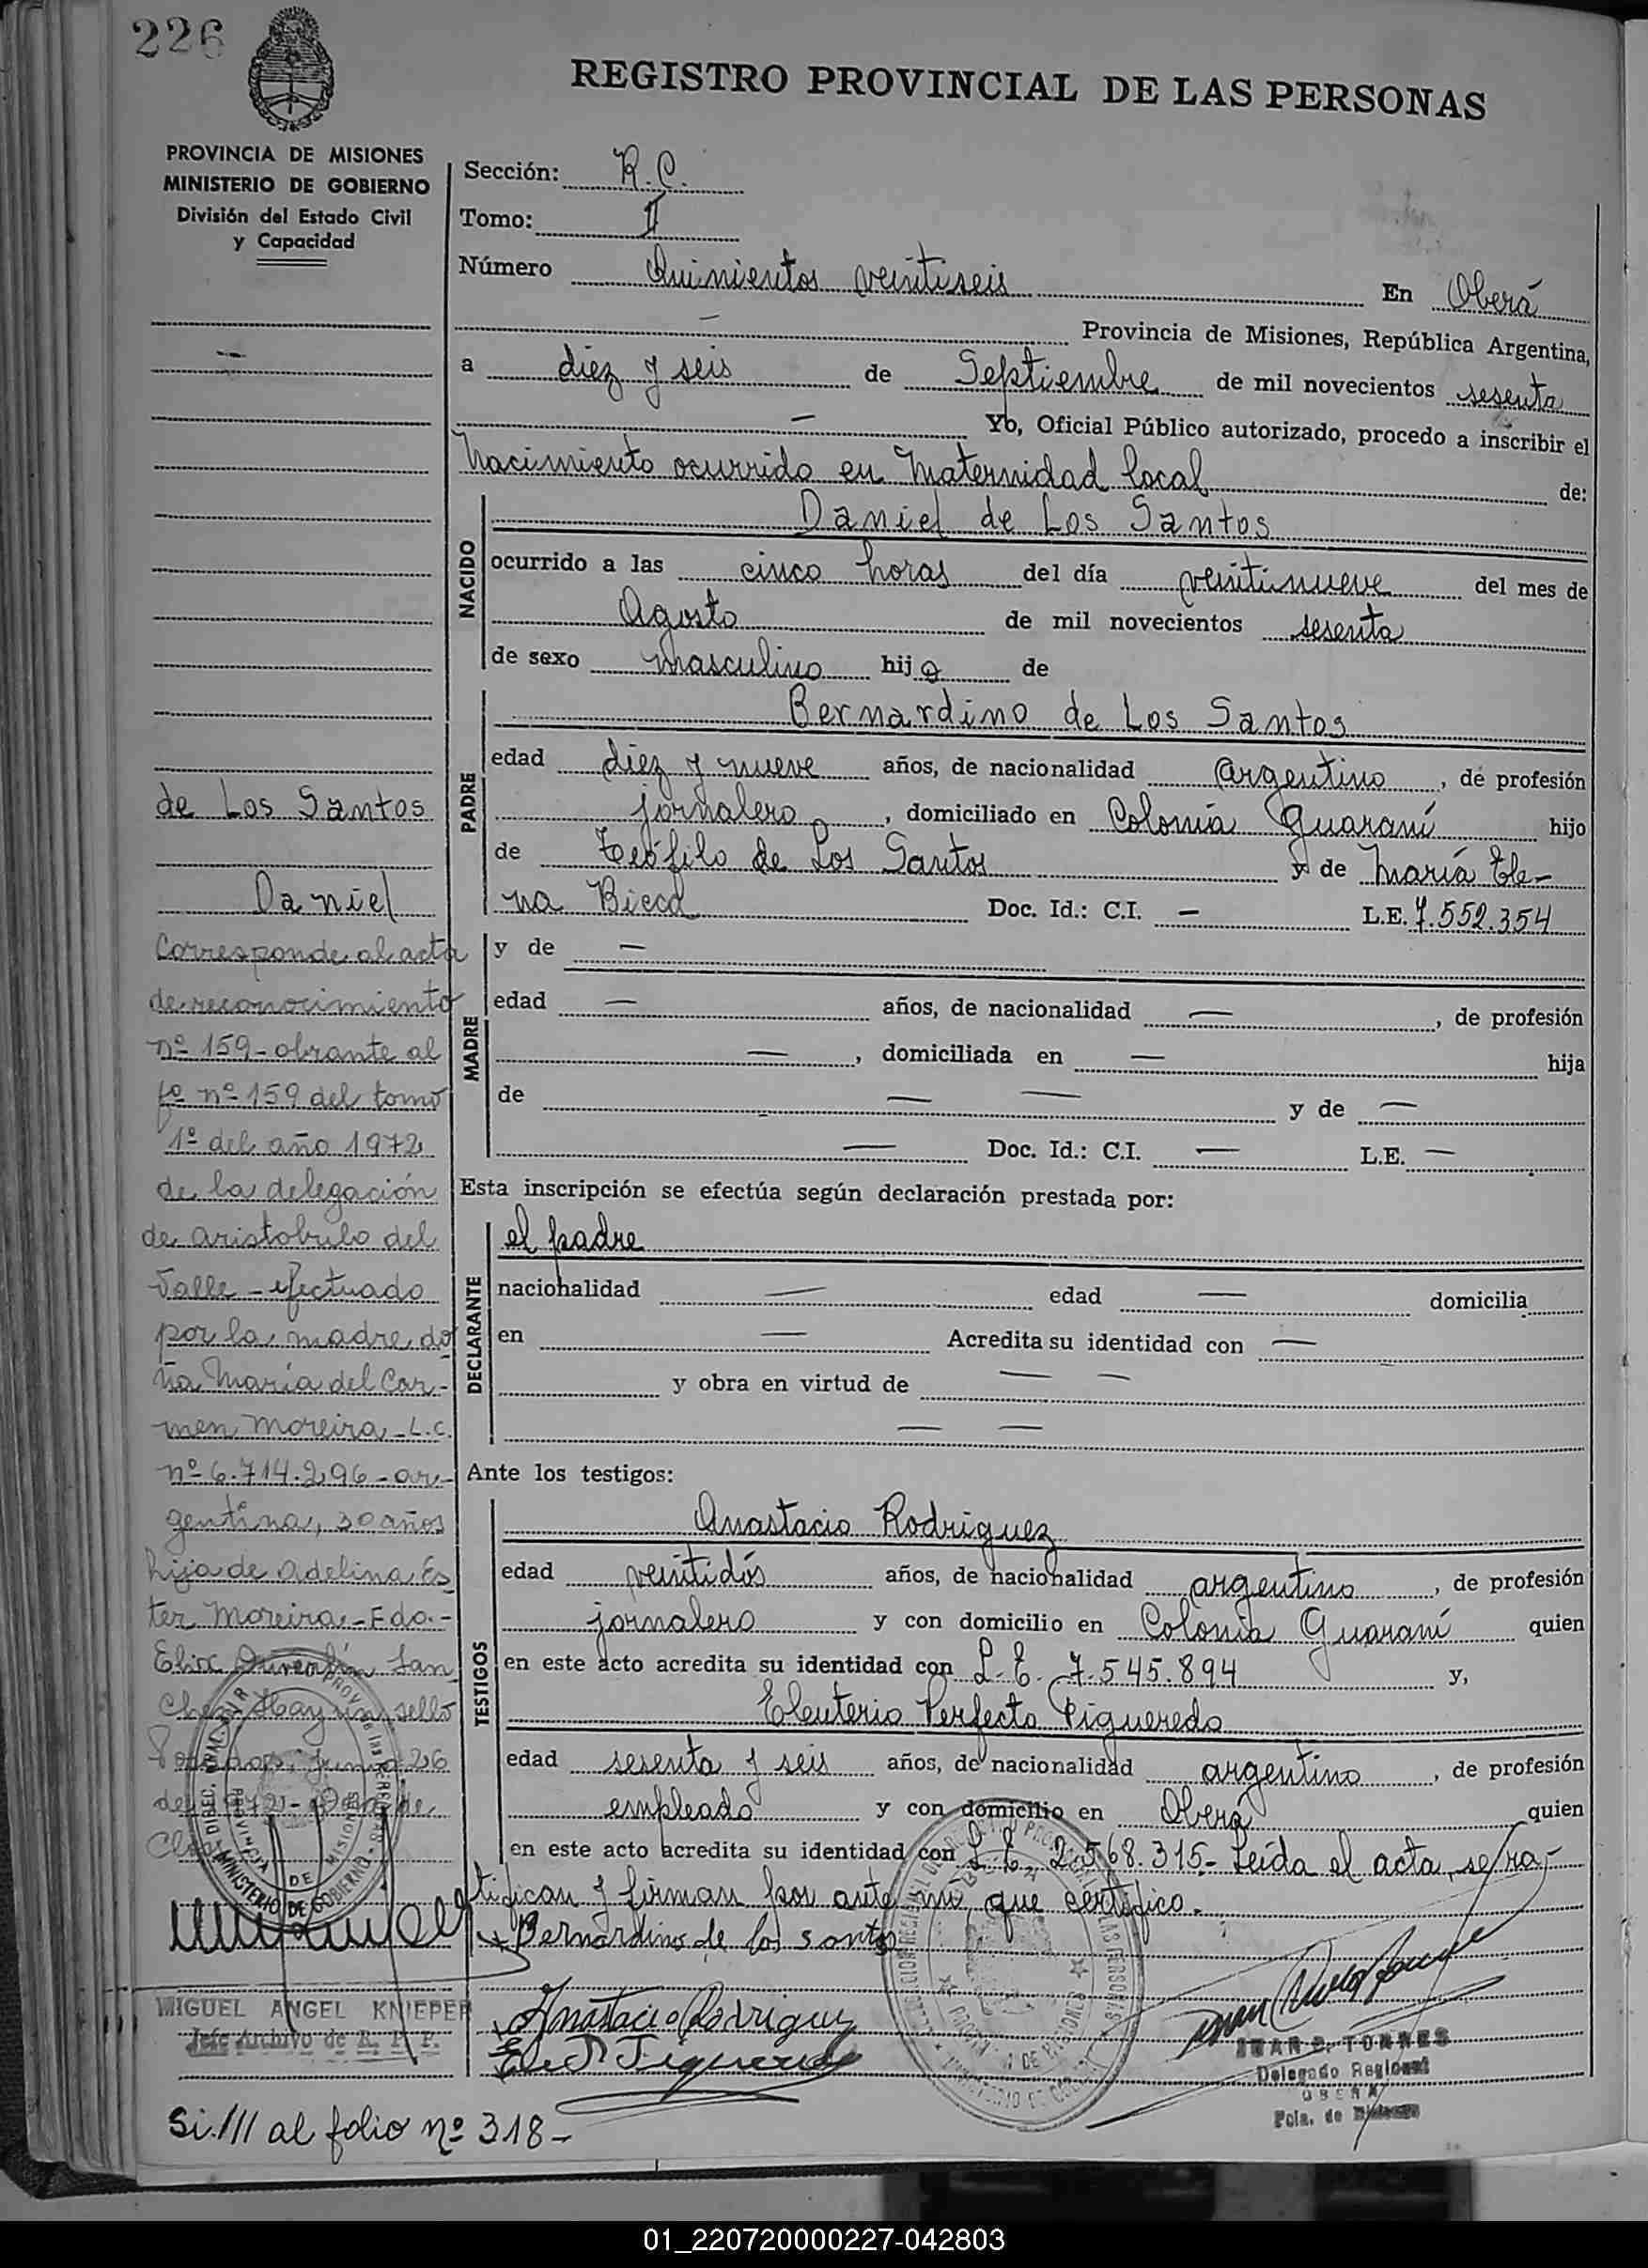 226
REGISTRO PROVINCIAL DE LAS PERSONAS
PROVINCIA DE MISIONES
MINISTERIO DE GOBIERNO
División del Estado Civil
y Capacidad
Sección: R.C.
Tomo: II
Número Quinientos veintiseis En Oberá
— Provincia de Misiones, República Argentina,
a diez y seis de Septiembre de mil novecientos sesenta
— Yo, Oficial Público autorizado, procedo a inscribir el
Nacimiento ocurrido en Maternidad local de:
NACIDO
Daniel de Los Santos
ocurrido a las cinco horas del día veintinueve del mes de
Agosto de mil novecientos sesenta
de sexo masculino hijo de
PADRE
Bernardino de Los Santos
edad diez y nueve años, de nacionalidad argentino, de profesión
jornalero, domiciliado en Colonia Guaraní hijo
de Teófilo de Los Santos y de María Ele-
na Doc. Id.: C.I. — L.E. 7.552.354
MADRE
y de —
edad — años, de nacionalidad —, de profesión
—, domiciliada en — hija
de — — y de —
— Doc. Id.: C.I. — L.E. —
Esta inscripción se efectúa según declaración prestada por:
DECLARANTE
el padre
nacionalidad — edad — domicilia
en — Acredita su identidad con —
y obra en virtud de — —
— —
Ante los testigos:
TESTIGOS
Anastacio Rodriguez
edad veintidós años, de nacionalidad argentino, de profesión
jornalero y con domicilio en Colonia Guaraní quien
en este acto acredita su identidad con L.E. 7.545.894 y,
Eleuterio Perfecto Figueredo
edad sesenta y seis años, de nacionalidad argentino, de profesión
empleado y con domicilio en Oberá quien
en este acto acredita su identidad con L.E. 2.568.315.- Leída el acta, se ra-
tifican y firman por ante mí, que certifico.
Bernardino de los santos
Anastacio Rodriguez
JUAN C. TORRES
Delegado Regional
OBERA
Pcia. de Misiones
de Los Santos
Daniel
Corresponde al acta
de reconocimiento
nº 159 - obrante al
fº nº 159 del tomo
1º del año 1972
de la delegación
de aristobulo del
Valle - efectuado
por la madre do
ña María del Car-
men Moreira - L.C.
nº 6.714.296 - ar-
gentina, 30 años
hija de Adelina Es
ter Moreira - Fdo. -
San
chez Hay un sello
Junio 26
de 1972 -
MIGUEL ANGEL KNIEPER
Jefe Archivo de R. P. P.
Si./// al folio nº 318 -
01_220720000227-042803